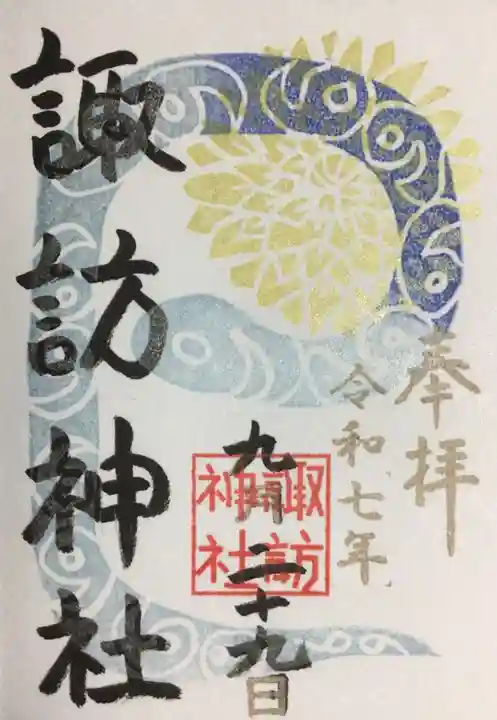 奉拝
令和七年
九月二十九日
諏訪神社
諏訪神社